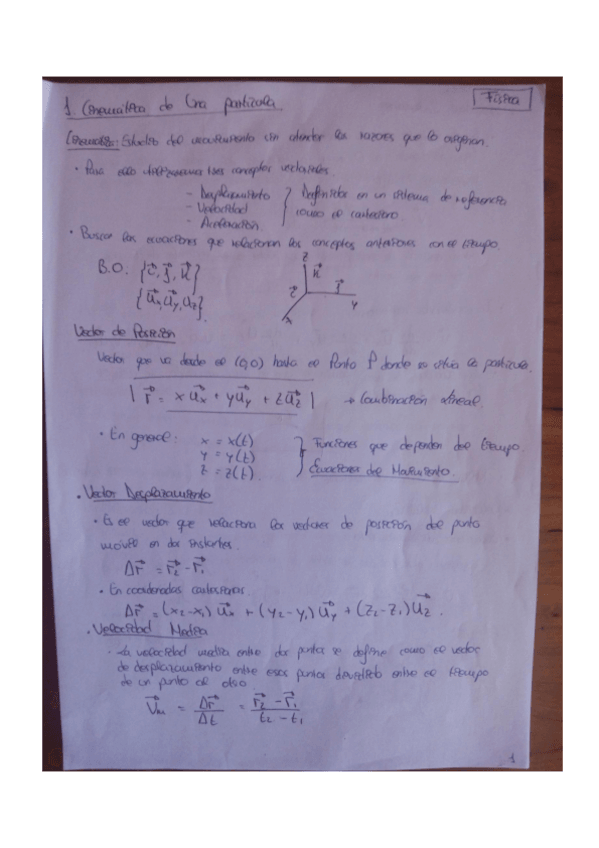 1. Cinemática de Una partícula
Física
Cinemática: Estudio del movimiento sin atender las razones que lo originan.
• Para ello utilizaremos tres conceptos vectoriales.
- Desplazamiento
- Velocidad
- Aceleración.
} Definidos en un sistema de referencia
como el cartesiano.
• Buscar las ecuaciones que relacionan los conceptos anteriores con el tiempo.
B.O. {i⃗, j⃗, k⃗}
{u⃗x, u⃗y, u⃗z}.
z
k⃗
i⃗
j⃗
y
x
Vector de Posición
Vector que va desde el (0,0) hasta el Punto P donde se sitúa la partícula.
| r⃗ = x u⃗x + y u⃗y + z u⃗z | → Combinación lineal.
• En general: x = x(t)
y = y(t)
z = z(t).
} Funciones que dependen del tiempo.
Ecuaciones del Movimiento.
• Vector Desplazamiento
• Es el vector que relaciona los vectores de posición del punto
móvil en dos instantes.
Δr⃗ = r⃗2 - r⃗1
• En coordenadas cartesianas.
Δr⃗ = (x2-x1) u⃗x + (y2-y1) u⃗y + (z2-z1) u⃗z.
• Velocidad Media
• La velocidad media entre dos puntos se define como el vector
de desplazamiento entre esos puntos dividido entre el tiempo
de un punto al otro
V⃗m = Δr⃗/Δt = (r⃗2 - r⃗1)/(t2 - t1)
1